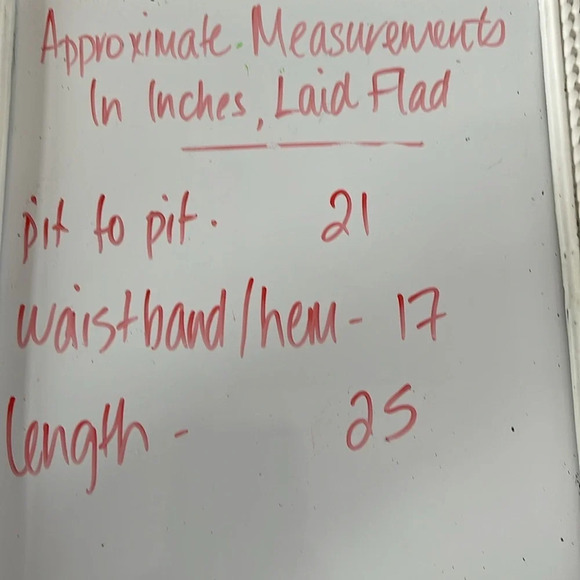 Approximate Measurements
In Inches, Laid Flad
pit to pit. 21
waistband/hem - 17
length - 25